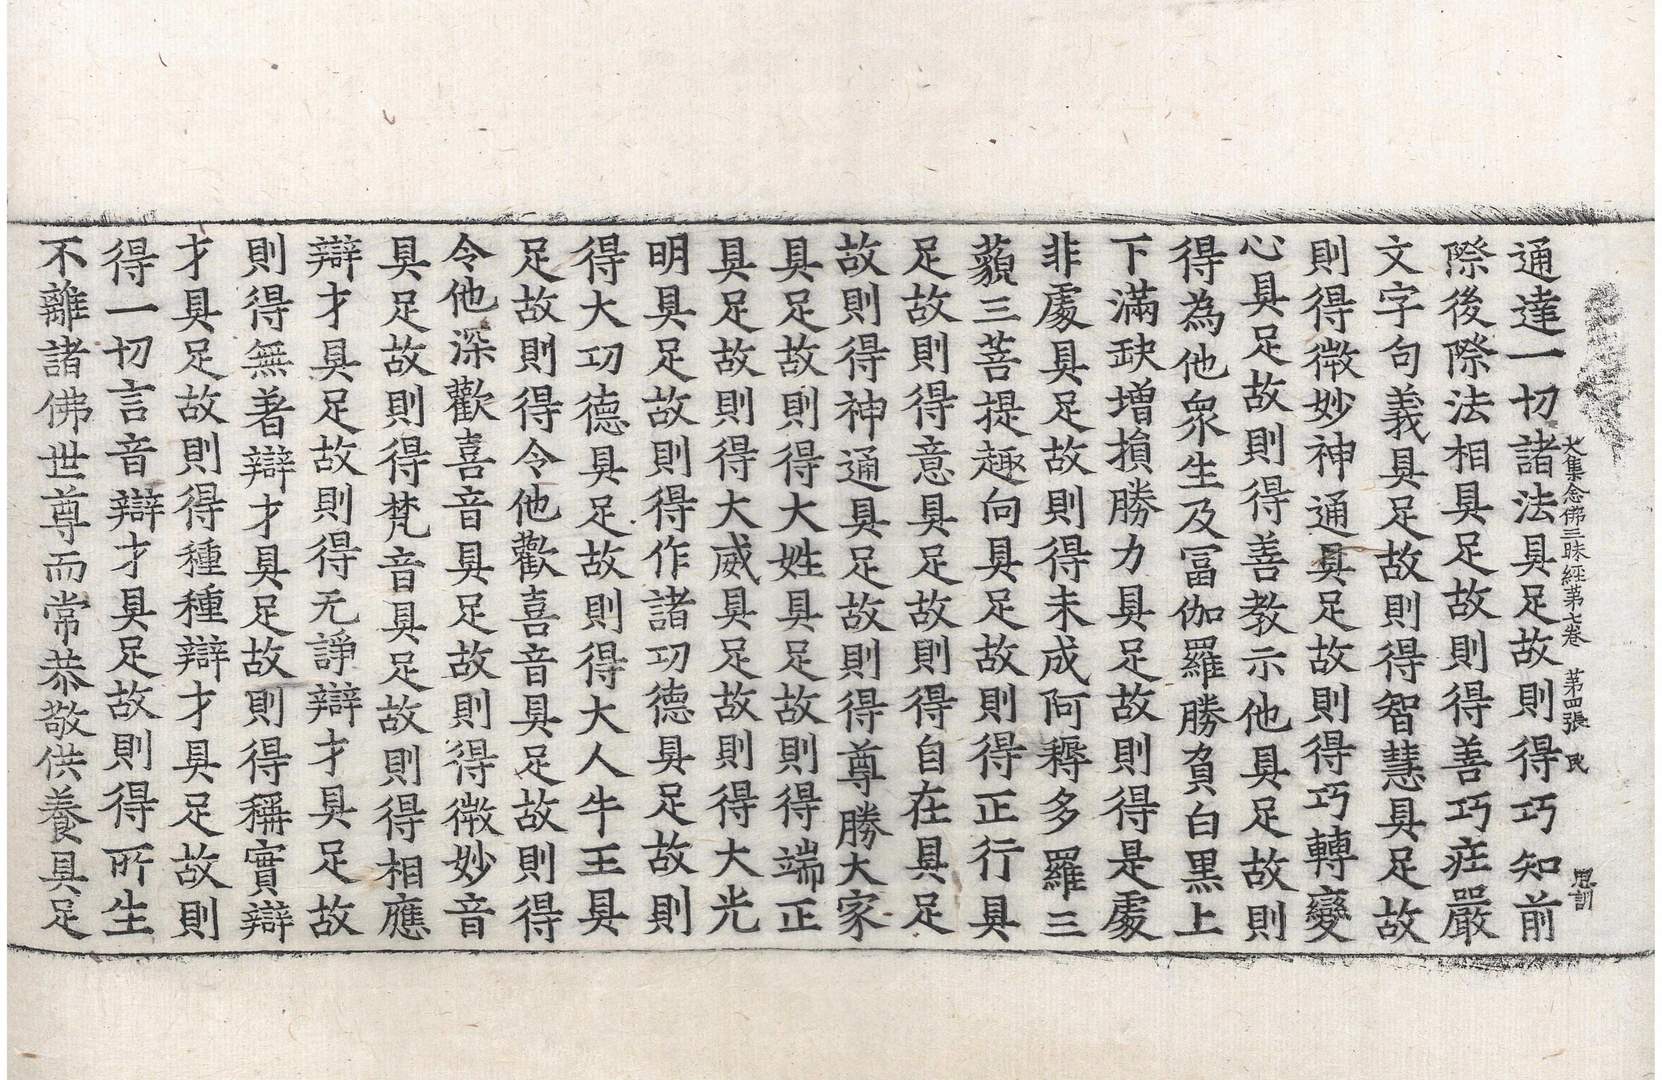 大集念佛三昧經第七卷　第四張　民
思訓
通達一切諸法具足故則得巧知前
際後際法相具足故則得善巧莊嚴
文字句義具足故則得智慧具足故
則得微妙神通具足故則得巧轉變
心具足故則得善教示他具足故則
得為他眾生及冨伽羅勝負白黒上
下滿缺增損勝力具足故則得是處
非處具足故則得未成阿耨多羅三
藐三菩提趣向具足故則得正行具
足故則得意具足故則得自在具足
故則得神通具足故則得尊勝大家
具足故則得大姓具足故則得端正
具足故則得大威具足故則得大光
明具足故則得作諸功德具足故則
得大功德具足故則得大人牛王具
足故則得令他歡喜音具足故則得
令他深歡喜音具足故則得微妙音
具足故則得梵音具足故則得相應
辯才具足故則得无諍辯才具足故
則得無著辯才具足故則得稱實辯
才具足故則得種種辯才具足故則
得一切言音辯才具足故則得所生
不離諸佛世尊而常恭敬供養具足